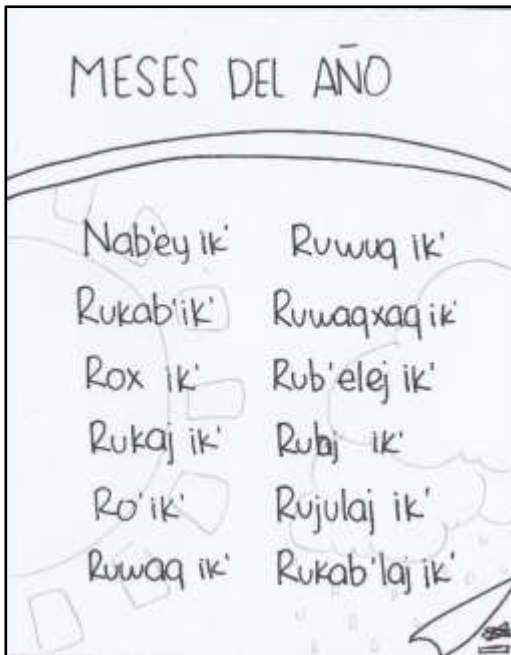 MESES DEL AÑO
Nab'ey ik'
Rukab' ik'
Rox ik'
Rukaj ik'
Ro' ik'
Ruwaq ik'
Ruwuq ik'
Ruwaqxaq ik'
Rub'elej ik'
Rulaj ik'
Rujulaj ik'
Rukab'laj ik'